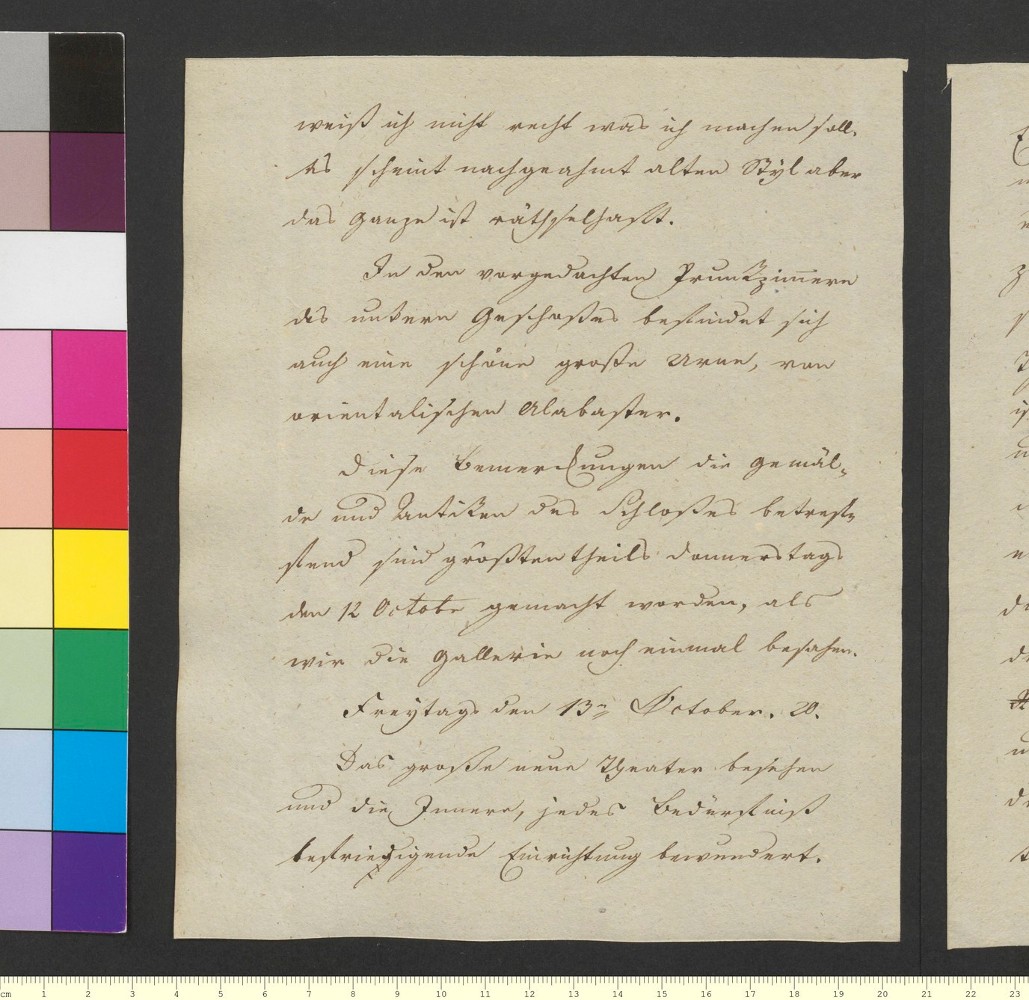 weiß ich nicht recht was ich machen soll.
Es scheint nachgeahmt alten Styl aber
das Ganze ist räthselhaft.
In den vorgedachten Prunkzimmern
des untern Geschoßes befindet sich
auch eine schöne große Urne, von
orientalischen Alabaster.
Diese Bemerkungen die Gemäl-
de und Antiken des Schloßes betref-
fend sind größtentheils Donnerstags
den 12 Octobr gemacht worden, als
wir die Gallerie noch einmal besahen.
Freytags den 13n October. 20.
Das große neue Theater besehen
und die Innere, jedes Bedürfniß
befriedigende Einrichtung bewundert.